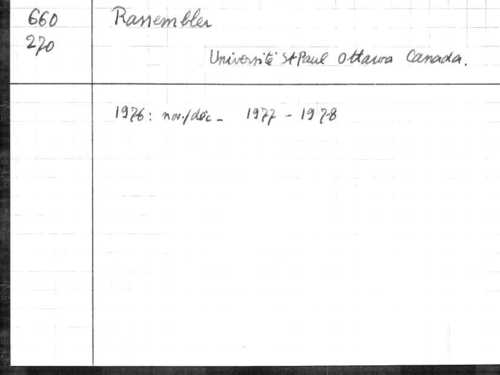 660
270
Rassembler
Université St Paul Ottawa Canada.
1976: nov./déc - 1977 - 1978